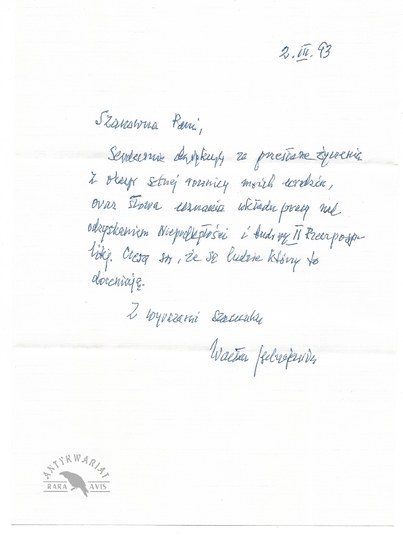 2.III.93
Szanowna Pani,
Serdecznie dziękuję za przesłane życzenia
z okazji setnej rocznicy moich urodzin,
oraz słowa uznania wkładu pracy nad
odzyskaniem Niepodległości i budowy II Rzeczpospo-
litej. Cieszę się, że są ludzie którzy to
doceniają.
Z wyrazami szacunku
Wacław Jędrzejewicz
ANTYKWARIAT
RARA AVIS